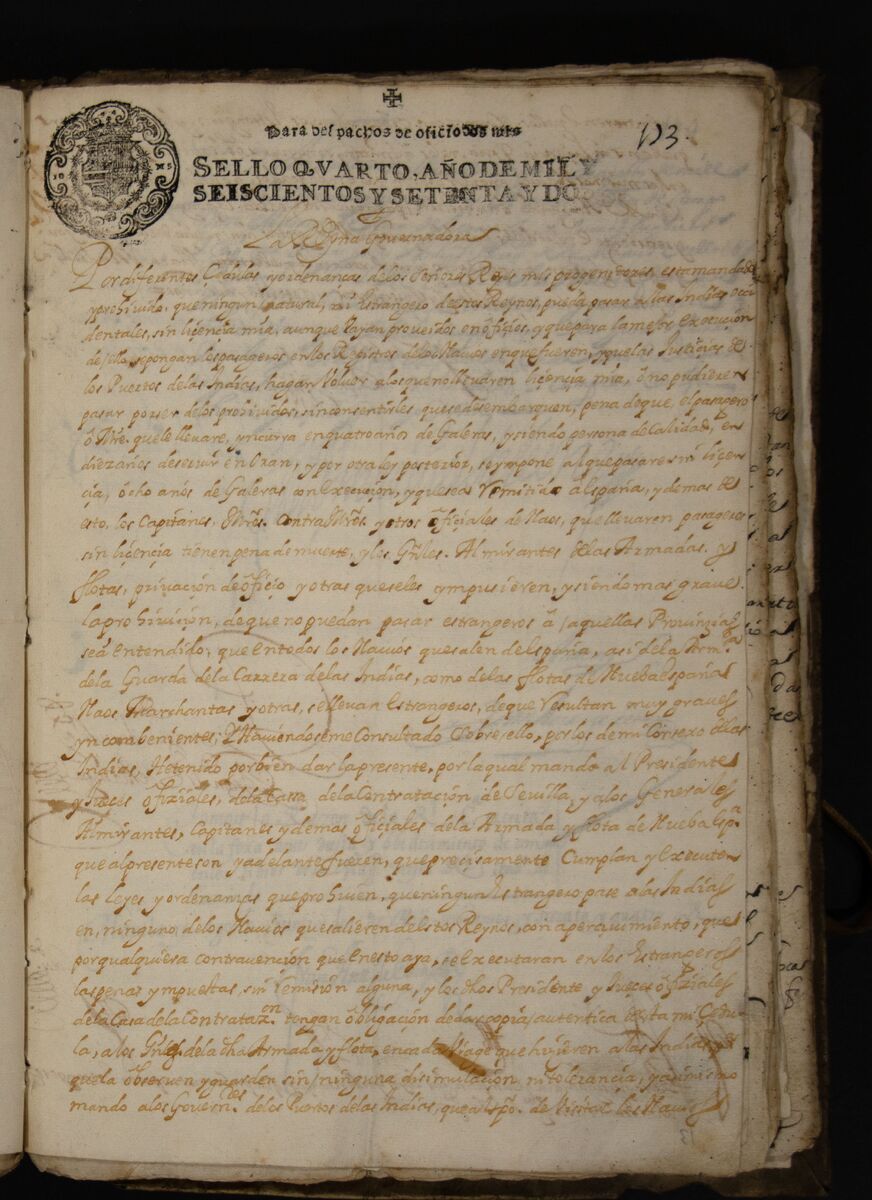 ✠
Para despachos de oficio dos mrs
113.
SELLO QVARTO, AÑO DE MIL Y
SEISCIENTOS Y SETENTA Y DO
La Reyna Governadora
Por diferentes Cedulas y ordenanças de los Señores Reyes mis progenitores, esta mandado
y prohivido, que ningun natural, ni Estrangero de estos Reynos, pueda pasar a las Indias occi
dentales, sin liçençia mia, aunque bayan proveidos en ofiçios, y que para la mejor execuçion
de ello, se pongan los pasageros en los Registros de los Navios en que fueren, y que las Justiçias de
los Puertos de las Indias, hagan Volver a los que no llevaren liçençia mia, ò no pudieren
pasar por ser de los prohividos, sin consentirles que se desembarquen, pena de que, el pasagero
ò Mre. que le llevare, yncurra en quatro años de Galeras, y siendo persona de Calidad, en
diez años de servir en Oran, y por otra ley posterior, se ympone al que pasare sin liçen
çia, ocho anõs de Galeras con execuçion, y que sea Remitido a España, y demas de
esto, los Capitanes, Mrõs. contra Mrõs. y otros ofiçiales de Naos, que llevaren pasageros
sin liçençia tienen pena de muerte, y los Grãles. Almirantes de las Armadas. y
flotas, privaçion de ofiçio y otras que se les ympusieren, y siendo mas grave
la prohiviçion, de que no puedan pasar estrangeros a aquellas Provinzias
se à entendido, que en todos los Navios que salen de España, asi de la Arm.da
de la Guarda de la Carrera de las Indias, como de las flotas de Nueba españa
Naos Marchantas y otras, se llevan estrangeros, de que Resultan muy graves
yncombenientes; Y Haviendoseme Consultado Sobre ello, por los de mi Consexo de las
Indias, He tenido por bien dar la presente, por la qual mando al Presidente
y Jueçes ofiziales, de la Cassa de la Contrataçion de Sevilla, y a los Generales
Almirantes, Capitanes y demas ofiçiales de la Armada y flota de Nueba Esp.a
que al presente son y adelante fueren, que preçisamente Cumplan y Executen
las leyes y ordenanzas que prohiven, que ningun estrangero pase a las Indias
en, ninguno, de los Navios que salieren de estos Reynos, con aperçivimiento, que
por qualquiera contravençion que en esto aya, se executaran en los Estrangeros
las penas ympuestas, sin remision alguna, y los dhos Presidente y Jueçes ofiziales
de la Casa de la Contrataz.on tengan obligaçion de dar copia autentica de esta mi Çedu
la, a los Grãles. de la dha Armada y flota, en cada Viage que hiçieren a las Indias, para
que la observen y guarden sin ninguna disimulaçion, ni toleranzia, y asimismo
mando a los Governres. de los Puertos de las Indias, que al tpõ. de Visitar los Navios